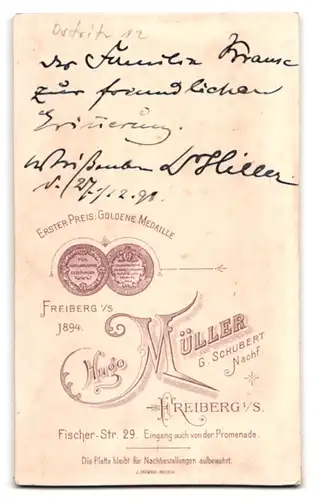 Ostritz 12
der Familie Krause
zur freundlichen
Erinnerung.
Dr Hiller
d. 27/12.98
ERSTER PREIS: GOLDENE MEDAILLE
FREIBERG I/S
1894.
Hugo
MÜLLER
G. SCHUBERT
Nachf.
FREIBERG I/S.
Fischer-Str. 29. Eingang auch von der Promenade.
Die Platte bleibt für Nachbestellungen aufbewahrt.